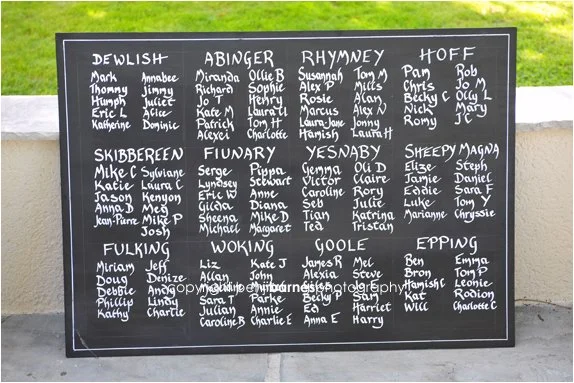 DEWLISH
Mark Annabee
Thommy Jimmy
Humph Juliet
Eric L Alice
Katherine Dominic
ABINGER
Miranda Ollie B
Richard Sophie
Jo T Henry
Kate M Laura U
Patrick Tom H
Alexei Charlotte
RHYMNEY
Susannah Tom M
Alex P Mills
Rosie Alan
Marcus Alex N
Laura-Jane Jonny
Hamish Laura H
HOFF
Pam Rob
Chris Jo M
Becky C Olly L
Nick Mary
Romy J'C
SKIBBEREEN
Mike C Sylviane
Katie Laura C
Jason Kenyon
Anna D Meg
Jean-Pierre Mike P
Josh
FIUNARY
Serge Pippa
Lyndsey Stewart
Eric W Anne
Gilda Diana
Sheena Mike D
Michael Margaret
YESNABY
Gemma Oli D
Victor Claire
Caroline Rory
Seb Julie
Tian Katrina
Ted Tristan
SHEEPY MAGNA
Elize Steph
Jamie Daniel
Eddie Sara F
Luke Tom Y
Marianne Chryssie
FULKING
Miriam Jeff
Doug Denize
Debbie Andy
Phillip Lindy
Kathy Charlie
WOKING
Liz Kate J
Allan John
Sara T Parke
Julian Annie
Caroline B Charlie E
GOOLE
James R Mel
Alexia Steve
Becky P Sam
Ed Harriet
Anna E Harry
EPPING
Ben Emma
Bron Tom P
Hamish C Leonie
Kat Rodion
Will Charlotte C